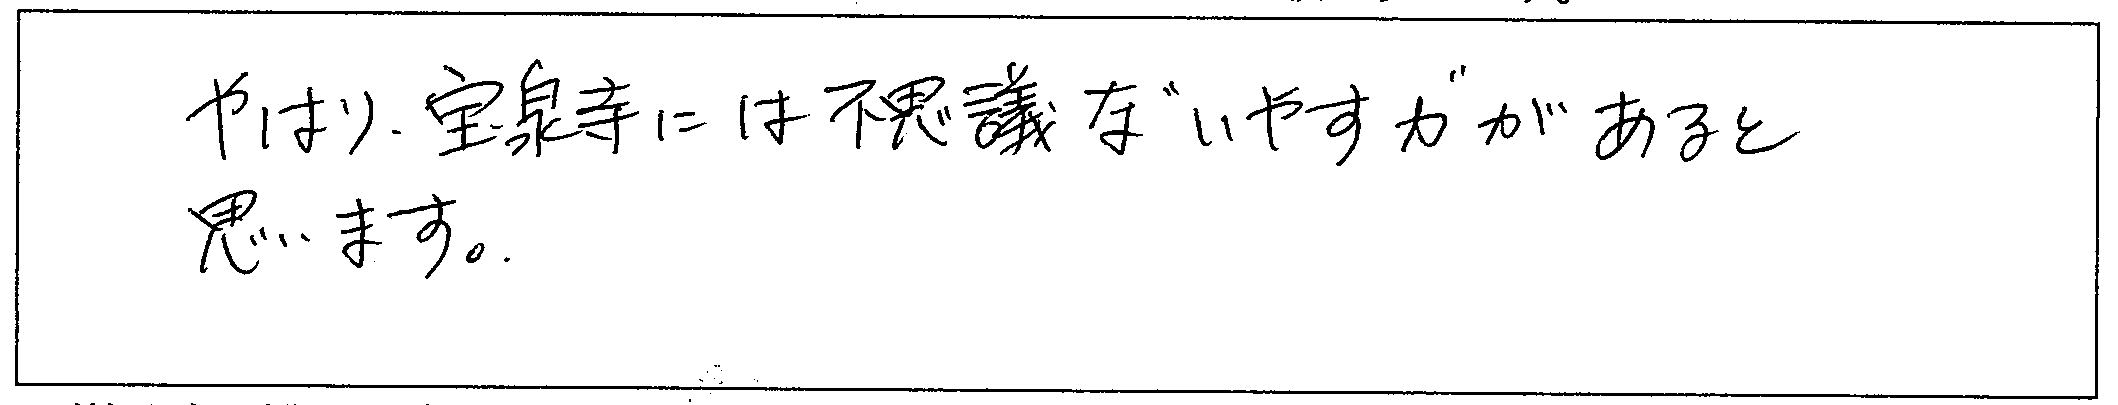 やはり、宝泉寺には不思議な"いやす力"があると
思います。